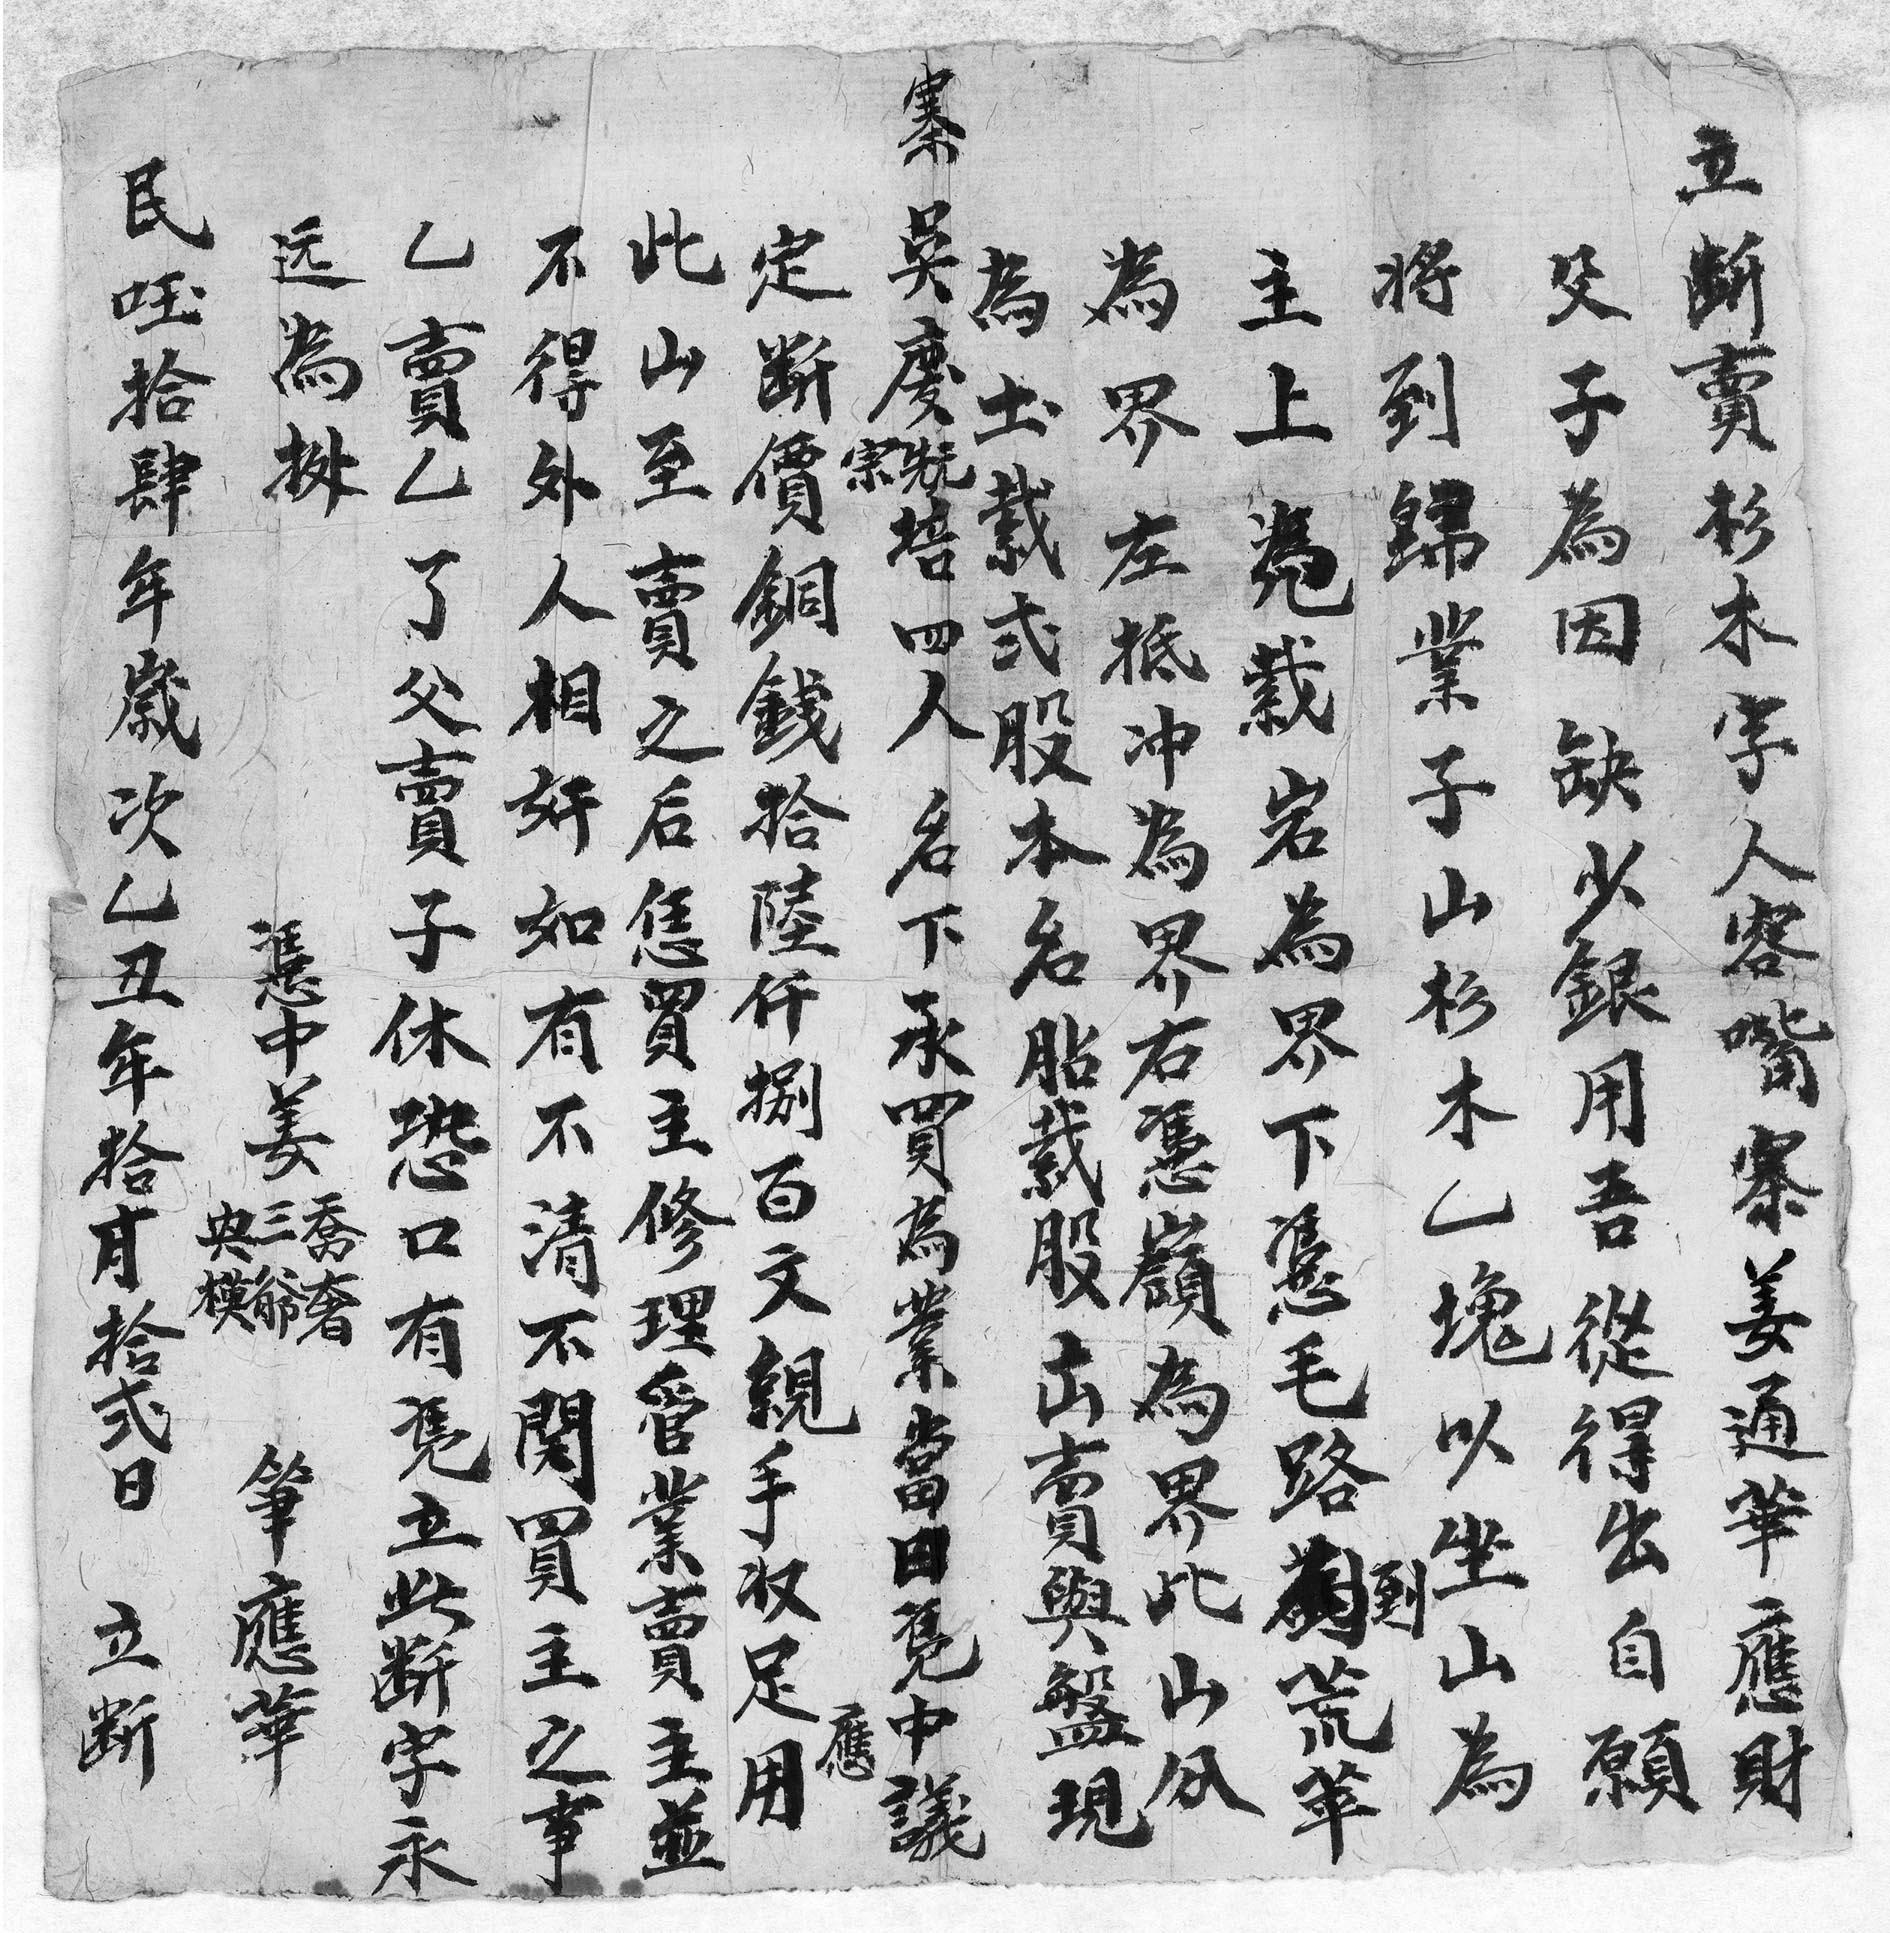 立斷賣杉木字人客嘴寨姜通華應財
父子為因缺少銀用吾從得出自願
將到歸業子山杉木乙塊以坐山為
主上凴栽岩為界下憑毛路到荒華
為界左抵冲為界右憑嶺為界此山分
為土栽弍股本名胎栽股出賣與盤現
寨吳慶宗培四人名下承買為業當日凴中議
定斷價銅錢拾陸仟捌百文親手收足用應
此山至賣之后恁買主修理管業賣主並
不得外人相奸如有不清不関買主之事
乙賣乙了父賣子休恐口有凴立此断字永
远為挀
憑中姜喬奢三爺央模 筆應華
民囯拾肆年歲次乙丑年拾月拾弍日 立断